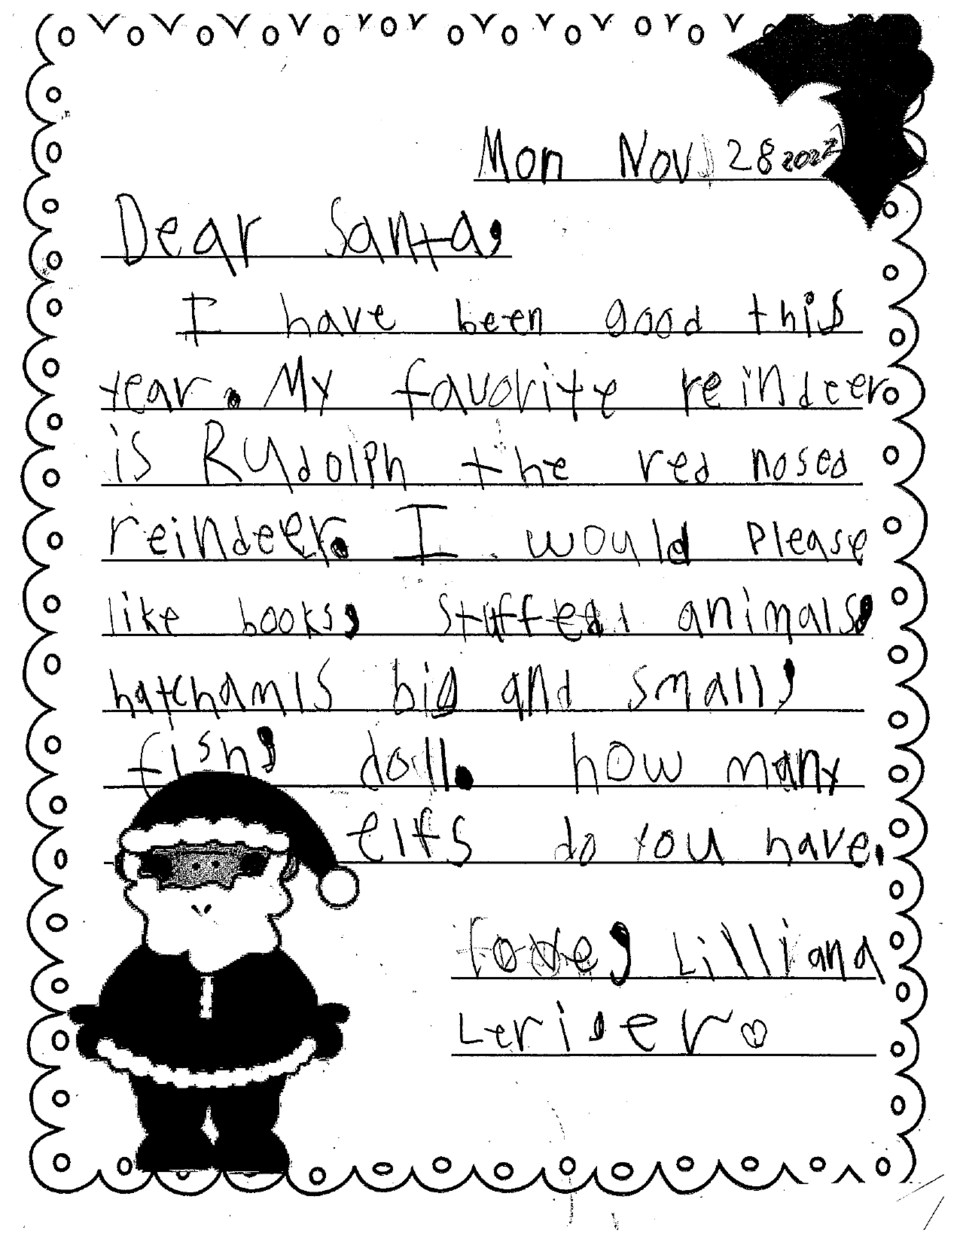 Mon Nov 28 2022
Dear Santa,
I have been good this
year. My favorite reindeer
is Rudolph the red nosed
reindeer. I would please
like books, stuffed animals,
hatchamls big and small,
fish, doll. how many
elfs do you have.
Love, Lilliana